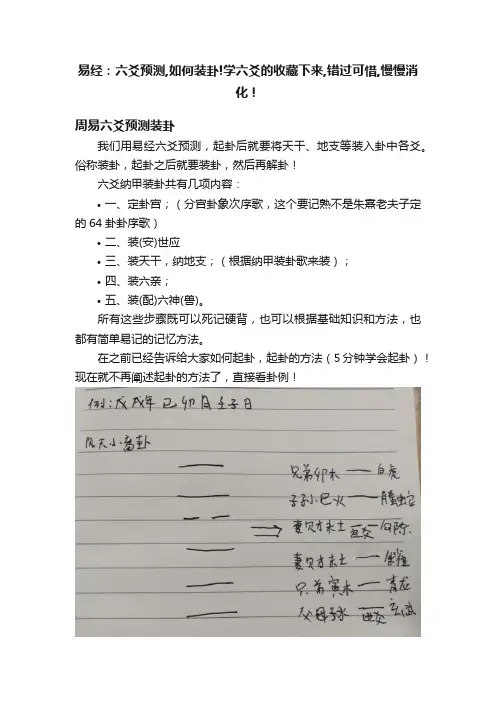 易经：六爻预测,如何装卦!学六爻的收藏下来,错过可惜,慢慢消
化！
周易六爻预测装卦
我们用易经六爻预测，起卦后就要将天干、地支等装入卦中各爻。
俗称装卦，起卦之后就要装卦，然后再解卦！
六爻纳甲装卦共有几项内容：
• 一、定卦宫；（分宫卦象次序歌，这个要记熟不是朱熹老夫子定
的 64 卦卦序歌）
• 二、装(安)世应
• 三、装天干，纳地支；（根据纳甲装卦歌来装）；
• 四、装六亲；
• 五、装(配)六神(兽)。
所有这些步骤既可以死记硬背，也可以根据基础知识和方法，也
都有简单易记的记忆方法。
在之前已经告诉给大家如何起卦，起卦的方法（5 分钟学会起卦）！
现在就不再阐述起卦的方法了，直接看卦例！
例:戊戌年 己卯月 壬子日
风天小畜卦
兄弟卯木 — 白虎
子孙巳火 — 螣蛇
妻财未土 应爻 勾陈.
妻财才未土 — 朱雀
兄弟寅木 — 青龙
父母子水 世爻 玄武